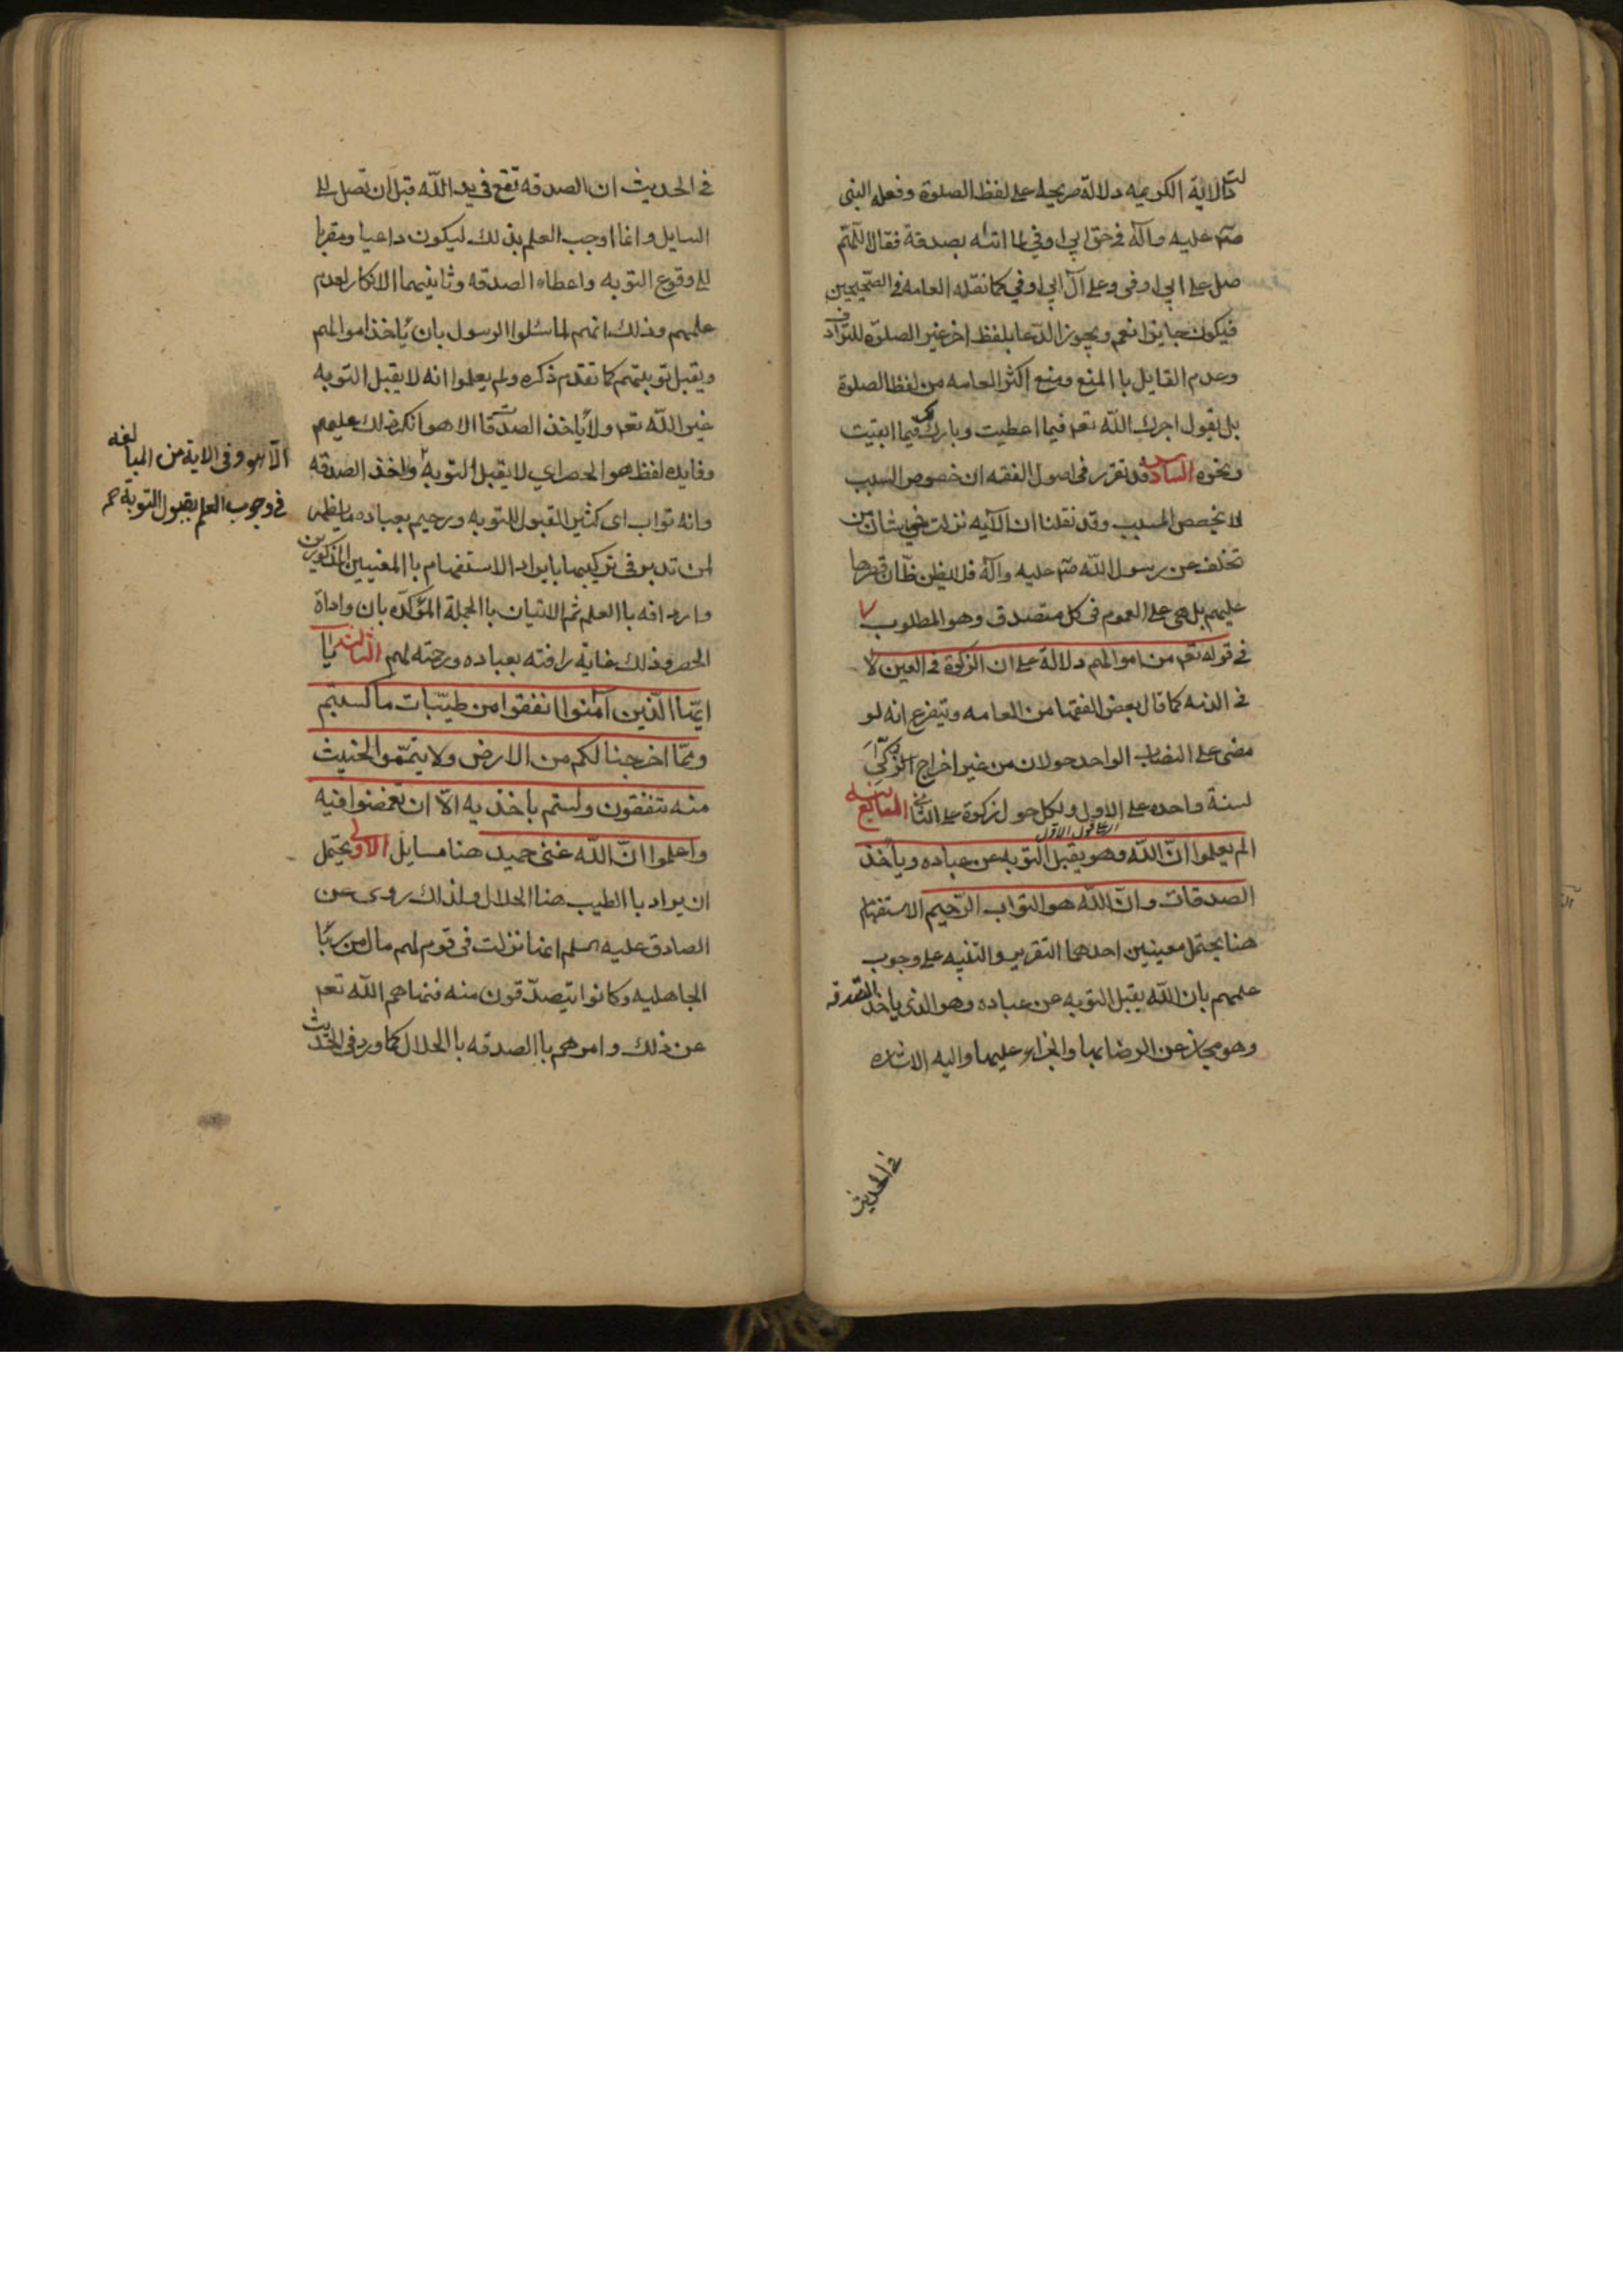 لدلالة الاية الكريمه دلالة صريحة على لفظ الصلوة وفعله النبى
صلّم عليه وآله فى حق ابى اوفى لما اتاه بصدقة فقال اللّهمّ
صل على ابى اوفى وعلى آل ابى اوفى كما نقله العامه فى الصّحيحين
فيكون جايزا نعم ويجوز الدّعا بلفظ اخر غير الصلوة للترادف
وعدم القايل باالمنع ومنع اكثر العامه من لفظ الصلوة
بل يقول اجرك الله تعـ فيما اعطيت وبارك لك فيما ابقيت
ونحوه السادسه قد تقرر فى اصول الفقه ان خصوص السبب
لا يخصص المسبب وقد نقلنا ان الآيه نزلت فى شان من
تخلف عن رسول الله صلّم عليه وآله فلا يظن ظانّ قصرها
عليهم بل هى على العموم فى كل متصدق وهو المطلوب
فى قوله تعـ من اموالهم دلالة على ان الزكوة فى العين لا
فى الذمه كما قال بعض الفقها من العامه ويتفرع انه لو
مضى على النصاب الواحد حولان من غير اخراج الزكوة
لسنة واحده على الاول ولكل حول زكوة على الثانى
اى على قول الاول
الم يعلموا انّ الله وهو يقبل التوبه عن عباده وياخذ
الصدقات وانّ الله هو التواب الرّحيم الاستفهام
هنا يحتمل معنيين احدهما التقرير والتنبيه على وجوب
علمهم بان الله يقبل التوبه عن عباده وهو الذى ياخذ الصّدقه
وهو مجاز عن الرضا بها والجزاء عليها واليه الاشاره
فى الحديث
فى الحديث ان الصدقه تقع فى يد الله قبل ان تصل الى
السايل وانما اوجب العلم بذلك ليكون داعيا ومقربا
الى وقوع التوبه واعطاء الصدقه وثانيهما الانكار لعدم
علمهم وذلك انهم لما سئلوا الرسول بان ياخذ اموالهم
ويقبل توبتهم كما تقدم ذكره ولم يعلموا انه لا يقبل التوبه
غير الله تعـ ولا ياخذ الصدقات الا هو انكر ذلك عليهم
وفايده لفظ هو الحصر اي لا يقبل التوبه واخذ الصدقه
الّا هو وفى الاية من المبالغه
فى وجوب العلم بقبول التوبة
وانه تواب اى كثير القبول للتوبه ورحيم بعباده ما يظهر
لمن تدبر فى تركيبها بايراد الاستفهام باالمعنيين المذكورين
وارداقه باالعلم ثم الاتيان باالجملة المؤكّده بان واداة
الحصر وذلك غاية رافته بعباده ورحمته لهم الثالثه يا
ايّها الّذين آمنوا انفقوا من طيّبات ما كسبتم
وممّا اخرجنا لكم من الارض ولا تيمّموا الخبيث
منه تنفقون ولستم باخذيه الّا ان تغمضوا فيه
واعلموا انّ الله غنى حميد هنا مسايل الاولى يحتمل
ان يراد باالطيب هنا الحلال ولذلك روى عن
الصادق عليه السلم انها نزلت فى قوم لهم مال من ربا
الجاهليه وكانوا يتصدّقون منه فنهاهم الله تعـ
عن ذلك وامرهم باالصدقه باالحلال كما ورد فى الحديث